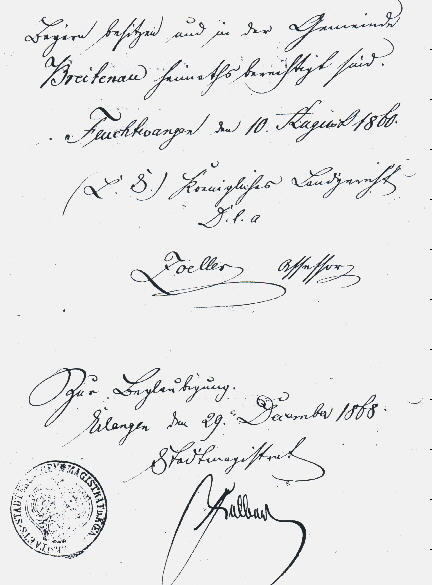 Bayern besitzen und in der Gemeinde
Breitenau heimathsberechtigt sind.
Feuchtwangen den 10. August 1860.
(L. S.) Koenigliches Landgericht
D. l. a
Zoeller Assessor
Zur Beglaubigung.
Erlangen den 29. Dezember 1868.
Stadtmagistrat